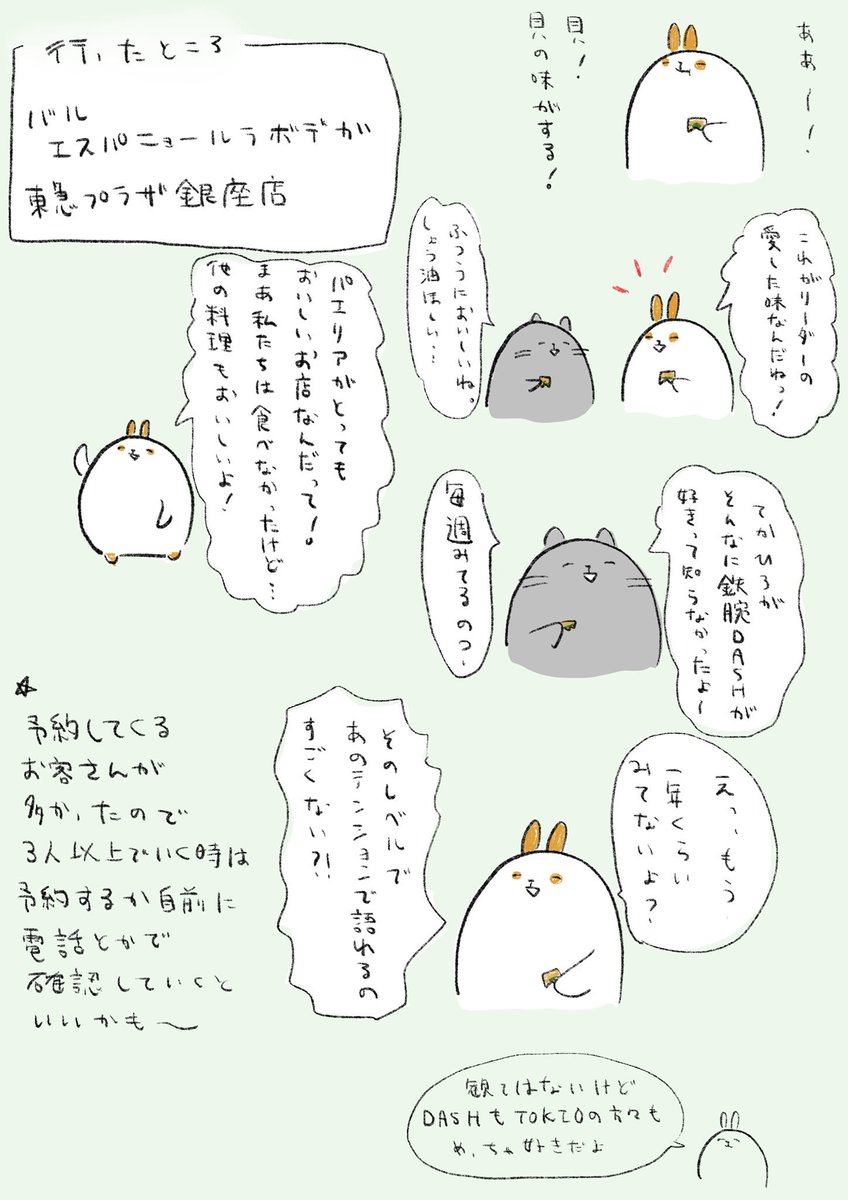 ああ〜！
貝！
貝の味がする！
これがリーダーの
愛した味なんだねっ！
ふつうにおいしいね。
しょう油ほしい…
てかひろが
そんなに鉄腕DASHが
好きって知らなかったよ〜
毎週みてるのっ〜
えっ、もう
一年くらい
みてないよ？
そのレベルで
あのテンションで語れるの
すごくない？！
観てはないけど
DASHもTOKIOの方々も
めっちゃ好きだよ
行ったところ
バル
エスパニョールラボデガ
東急プラザ銀座店
パエリアがとっても
おいしいお店なんだって！
まあ私たちは食べなかったけど…
他の料理もおいしいよ！
☆
予約してくる
お客さんが
多かったので
3人以上でいく時は
予約するか自前に
電話とかで
確認していくと
いいかも〜